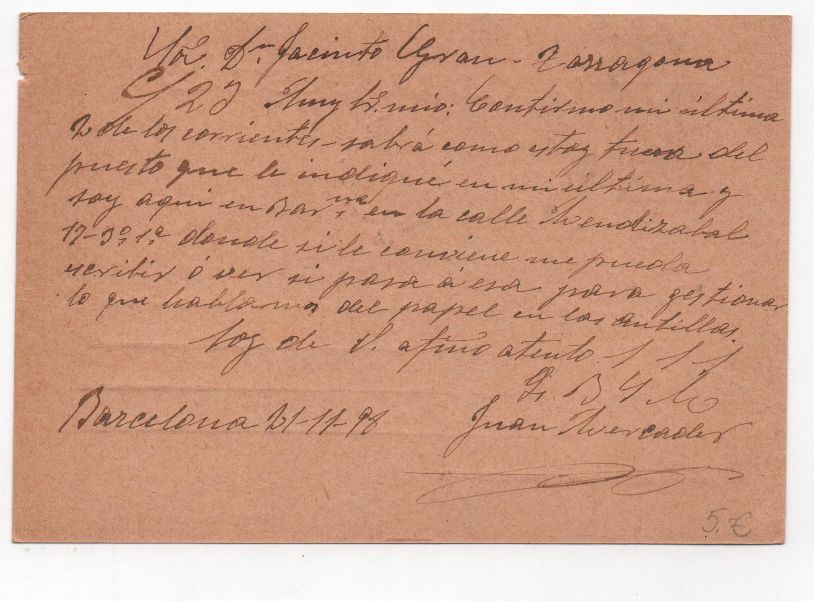 Sr. Dn. Jacinto Gran - Tarragona
C/23 Muy Sr. mio: Confirmo mi última
2 de los corrientes - sabrá como estoy fuera del
puesto que le indiqué en mi última y
soy aqui en Barna en la calle Mendizabal
17-3º 1ª donde si le conviene me pueda
escribir ó ver si pasa á esa para gestionar
lo que hablamos del papel en las antillas.
Soy de V. afmo atento S S S
Q B S M
Barcelona 21-11-98 Juan Mercader
5.€